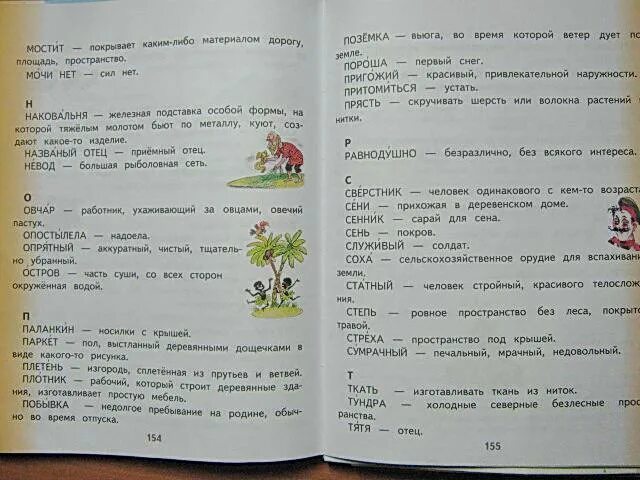 МОСТИ́Т — покрывает каким-либо материалом дорогу,
площадь, пространство.
МО́ЧИ НЕТ — сил нет.
Н
НАКОВА́ЛЬНЯ — железная подставка особой формы, на
которой тяжёлым молотом бьют по металлу, куют, соз-
дают какое-то изделие.
НАЗВА́НЫЙ ОТЕЦ — приёмный отец.
НЕ́ВОД — большая рыболовная сеть.
О
ОВЧА́Р — работник, ухаживающий за овцами, овечий
пастух.
ОПОСТЫ́ЛЕЛА — надоела.
ОПРЯ́ТНЫЙ — аккуратный, чистый, тщатель-
но убранный.
О́СТРОВ — часть суши, со всех сторон
окружённая водой.
П
ПАЛАНКИ́Н — носилки с крышей.
ПАРКЕ́Т — пол, выстланный деревянными дощечками в
виде какого-то рисунка.
ПЛЕТЕ́НЬ — изгородь, сплетённая из прутьев и ветвей.
ПЛО́ТНИК — рабочий, который строит деревянные зда-
ния, изготавливает простую мебель.
ПОБЫ́ВКА — недолгое пребывание на родине, обыч-
но во время отпуска.
154
ПОЗЁМКА — вьюга, во время которой ветер дует по
земле.
ПОРО́ША — первый снег.
ПРИГО́ЖИЙ — красивый, привлекательной наружности.
ПРИТОМИ́ТЬСЯ — устать.
ПРЯСТЬ — скручивать шерсть или волокна растений
нитки.
Р
РАВНОДУ́ШНО — безразлично, без всякого интереса.
С
СВЕ́РСТНИК — человек одинакового с кем-то возраста
СЕ́НИ — прихожая в деревенском доме.
СЕННИ́К — сарай для сена.
СЕНЬ — покров.
СЛУЖИ́ВЫЙ — солдат.
СОХА́ — сельскохозяйственное орудие для вспахивани
земли.
СТА́ТНЫЙ — человек стройный, красивого телослож
ния.
СТЕПЬ — ровное пространство без леса, покрыто
травой.
СТРЕ́ХА — пространство под крышей.
СУ́МРАЧНЫЙ — печальный, мрачный, недовольный.
Т
ТКАТЬ — изготавливать ткань из ниток.
ТУ́НДРА — холодные северные безлесные прос
ранства.
ТЯ́ТЯ — отец.
155